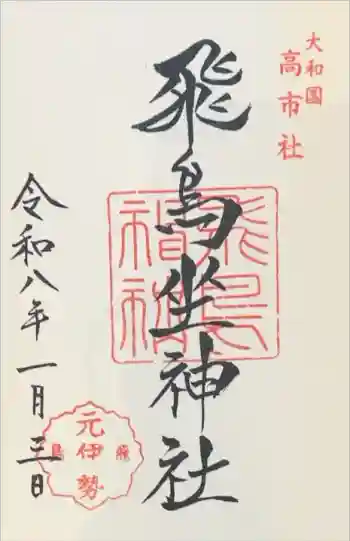 大和國
高市社
飛鳥坐神社
飛鳥
神社
令和八年一月三日
元伊勢
飛鳥